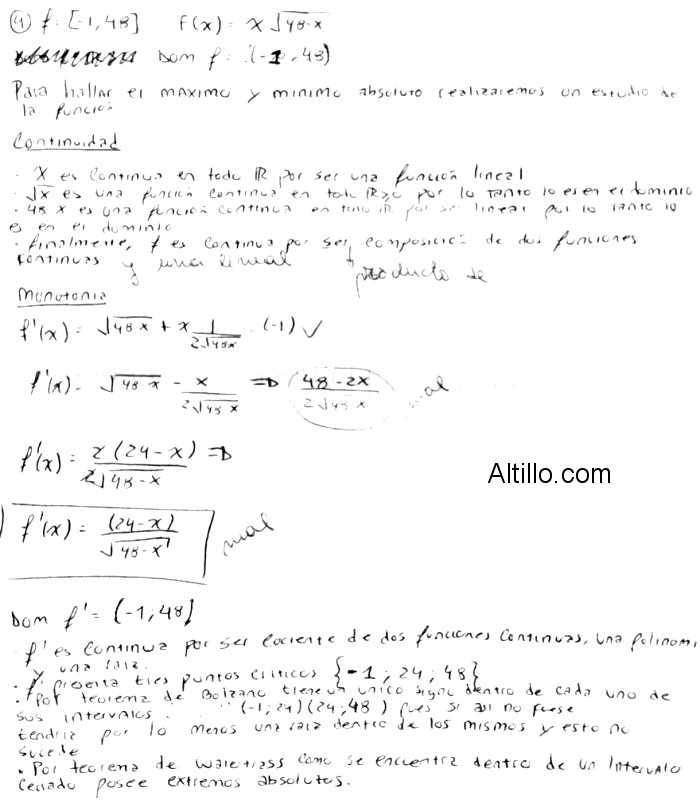 ④ f: [-1,48] F(x) = x √48-x
Dom f: (-1, 48)
Para hallar el maximo y minimo absoluto realizaremos un estudio de
la función
Continuidad
· X es continua en todo R por ser una función lineal
· √x es una función continua en todo R≥0 por lo tanto lo es en el dominio
· 48 x es una función continua en todo R por ser lineal por lo tanto lo
es en el dominio
· finalmente, f es continua por ser composición de dos funciones
continuas y una lineal producto de
Monotonia
f'(x) = √48-x + x 1/(2√48-x) · (-1) ✓
f'(x) = √48-x - x/(2√48-x) ⇒ (48-2x)/(2√48-x) mal
f'(x) = 2(24-x)/(2√48-x) ⇒
f'(x) = (24-x)/√48-x mal
Altillo.com
Dom f' = (-1; 48]
· f' es continua por ser cociente de dos funciones continuas, una polinomi
y una raiz.
· f' presenta tres puntos criticos {-1; 24; 48}
· Por teorema de Bolzano tiene un unico signo dentro de cada uno de
sus intervalos. (-1; 24) (24; 48) pues si asi no fuese
tendria por lo menos una raiz dentro de los mismos y esto no
sucede
· Por teorema de Waietrass como se encuentra dentro de un Intervalo
Cerrado posee extremos absolutos.